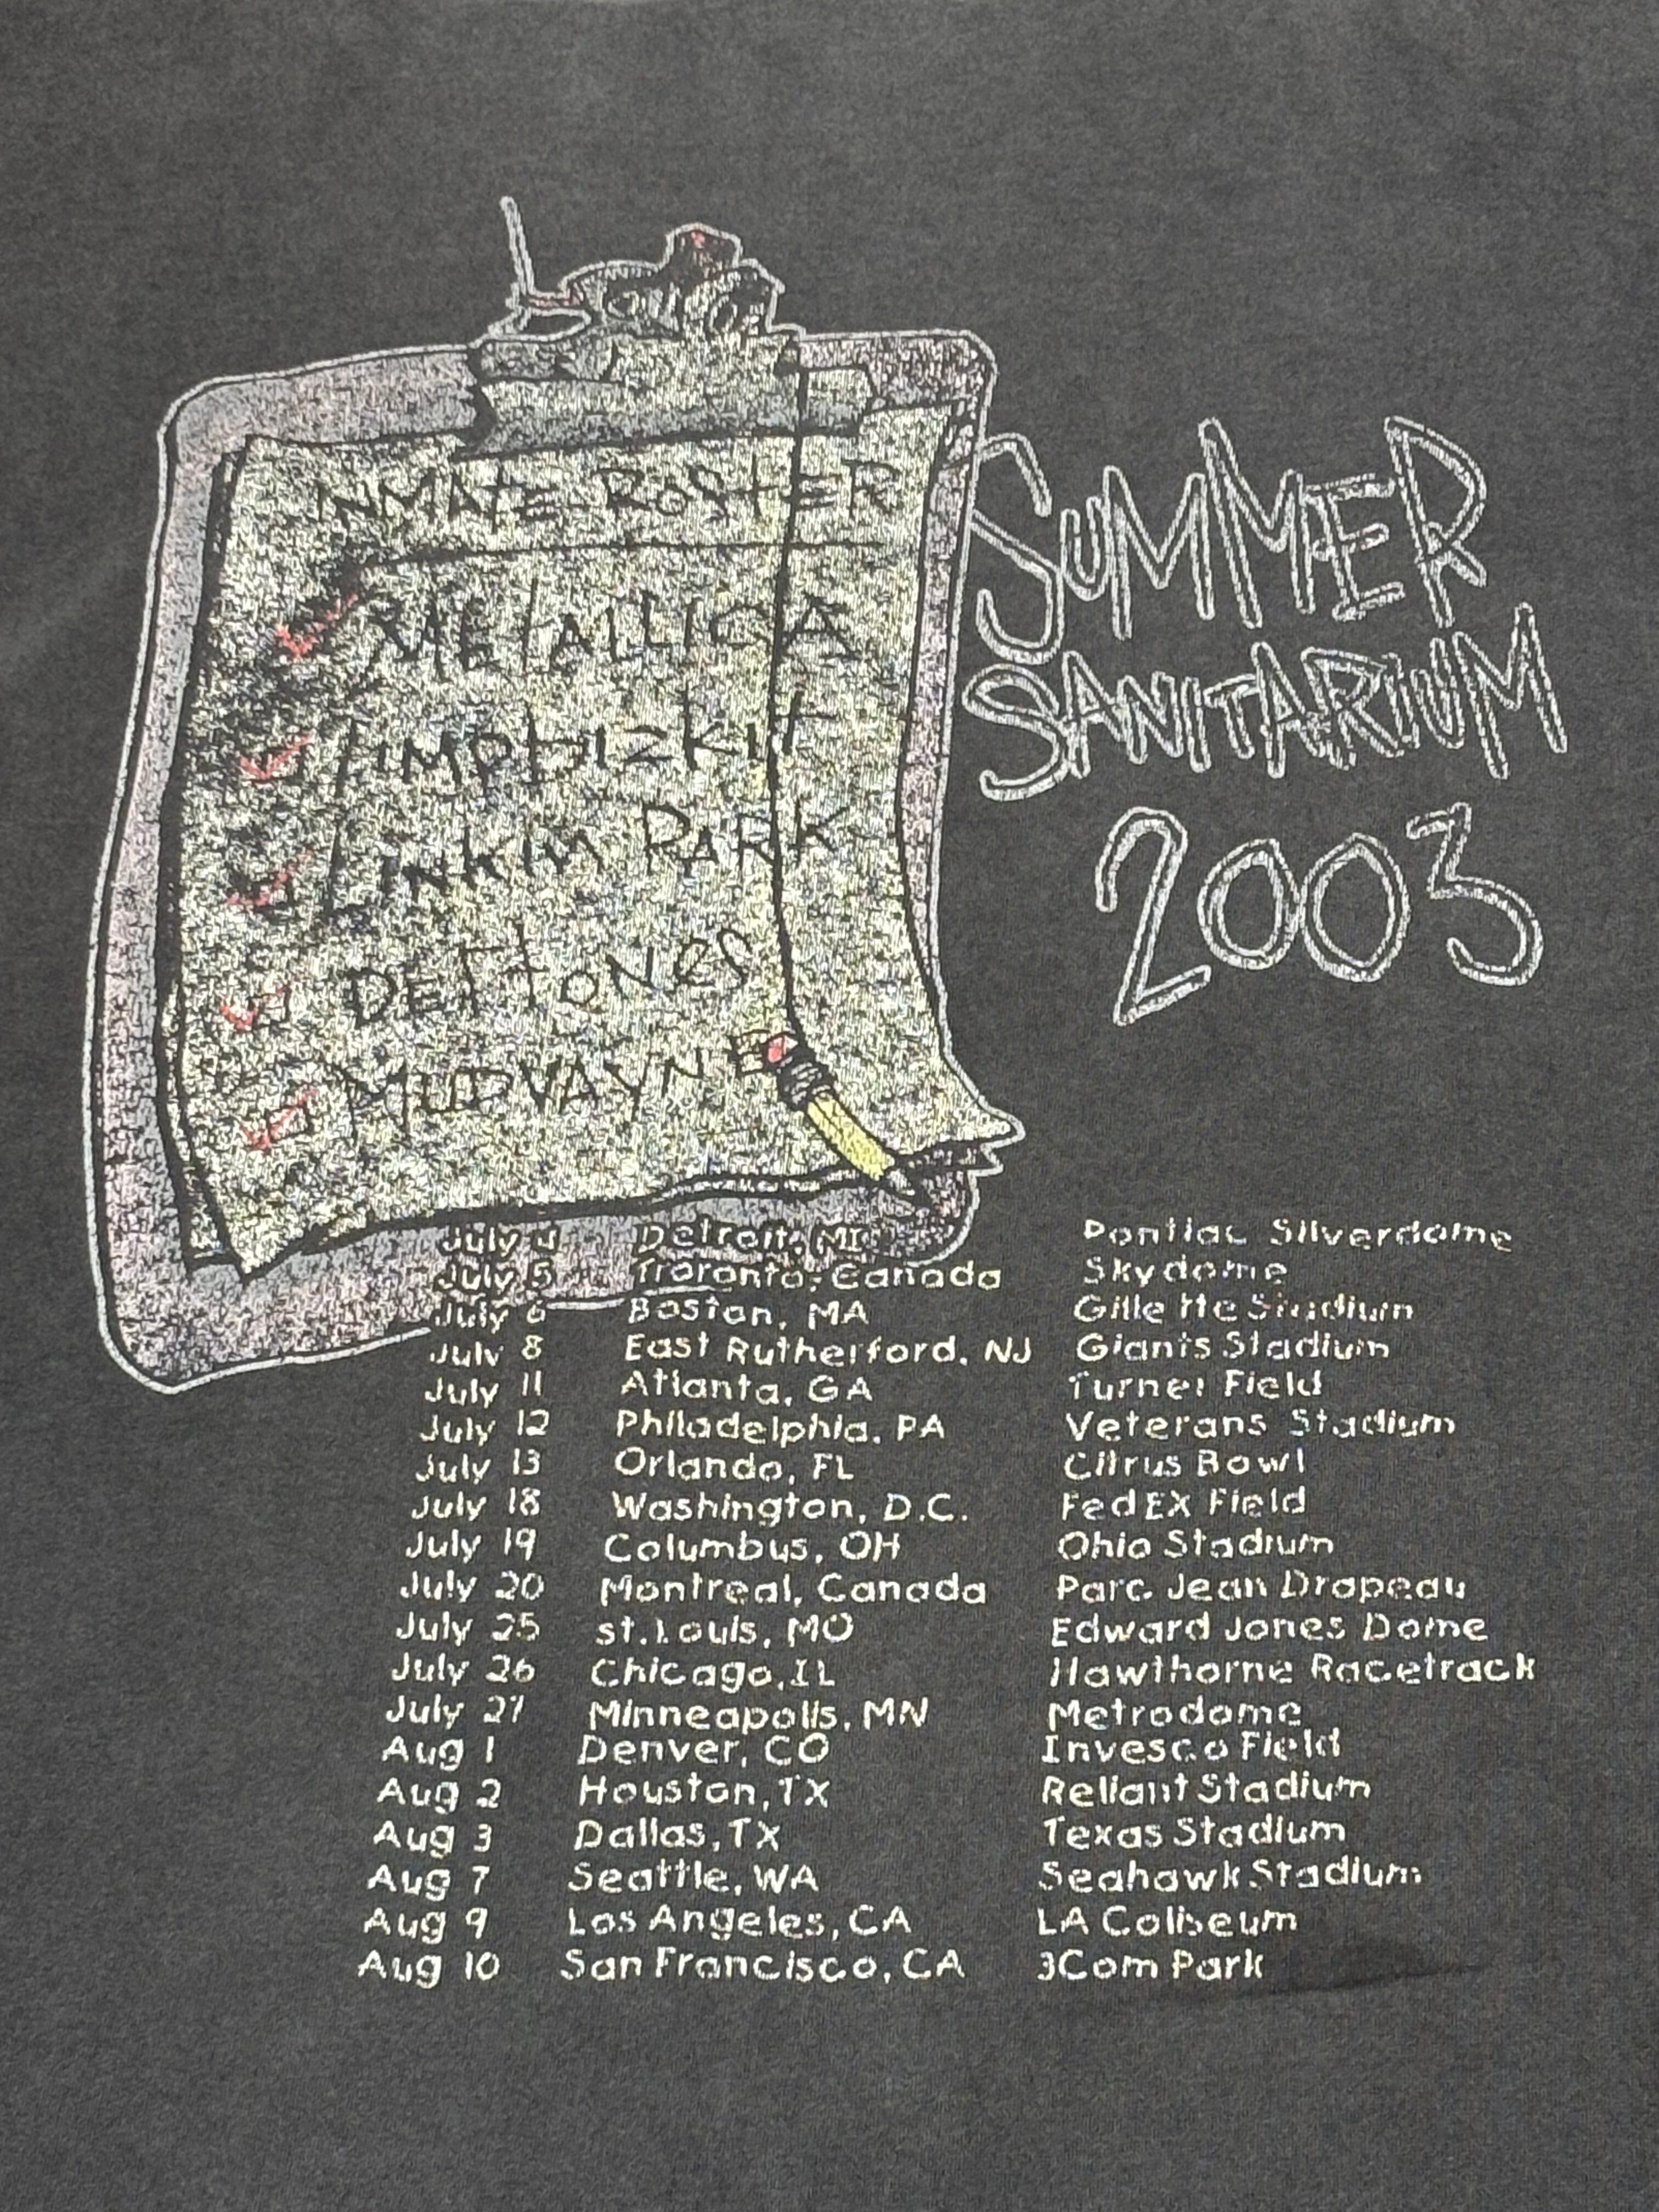 INMATE ROSTER
METALLICA
limpbizkit
LINKIN PARK
DEFTONES
MUDVAYNE
SUMMER
SANITARIUM
2003
July 4 Detroit, MI Pontiac Silverdome
July 5 Troronto, Canada Skydome
July 6 Boston, MA Gillette Stadium
July 8 East Rutherford, NJ Giants Stadium
July 11 Atlanta, GA Turner Field
July 12 Philadelphia, PA Veterans Stadium
July 13 Orlando, FL Citrus Bowl
July 18 Washington, D.C. FedEX Field
July 19 Columbus, OH Ohio Stadium
July 20 Montreal, Canada Parc Jean Drapeau
July 25 st.Louis, MO Edward Jones Dome
July 26 Chicago,IL Hawthorne Racetrack
July 27 Minneapolis, MN Metrodome
Aug 1 Denver, CO Invesco Field
Aug 2 Houston,TX Reliant Stadium
Aug 3 Dallas,TX Texas Stadium
Aug 7 Seattle, WA Seahawk Stadium
Aug 9 Los Angeles, CA LA Coliseum
Aug 10 San Francisco, CA 3Com Park